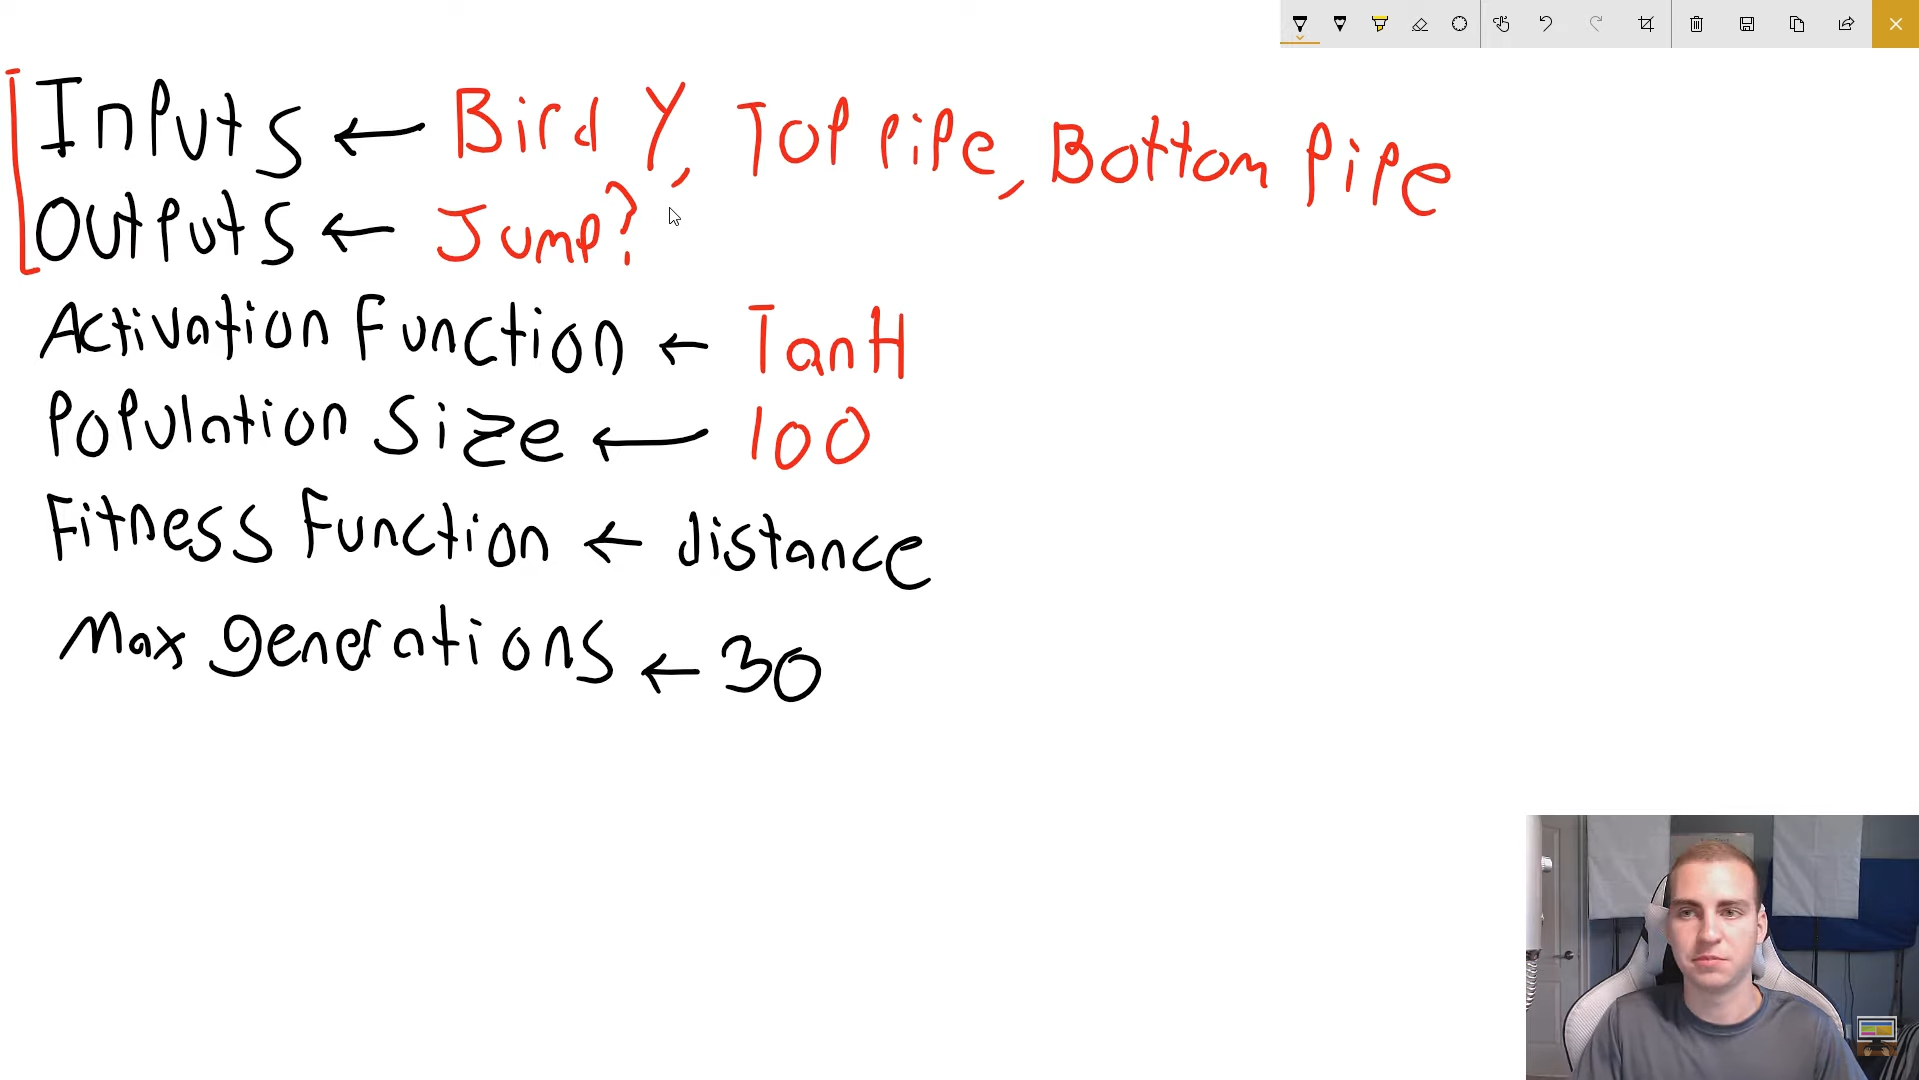 Inputs ← Bird Y, Top Pipe, Bottom Pipe
Outputs ← Jump?
Activation Function ← TanH
Population Size ← 100
Fitness Function ← distance
Max generations ← 30